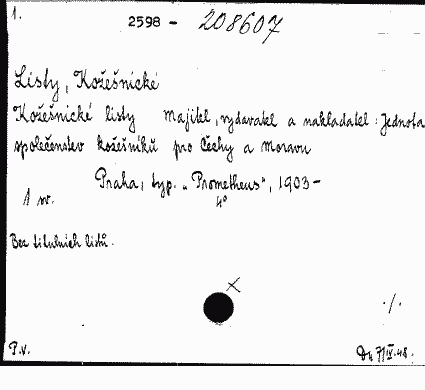 1.
2598 - 208607
Listy, Kožešnické
Kožešnické listy Majitel, vydavatel a nakladatel: Jednota
společenstev kožešníků pro Čechy a Moravu
Praha, typ. „Prometheus", 1903-
1 sv. 4°
Bez titulních listů.
×
./.
P.v. Du 7/IV.48.